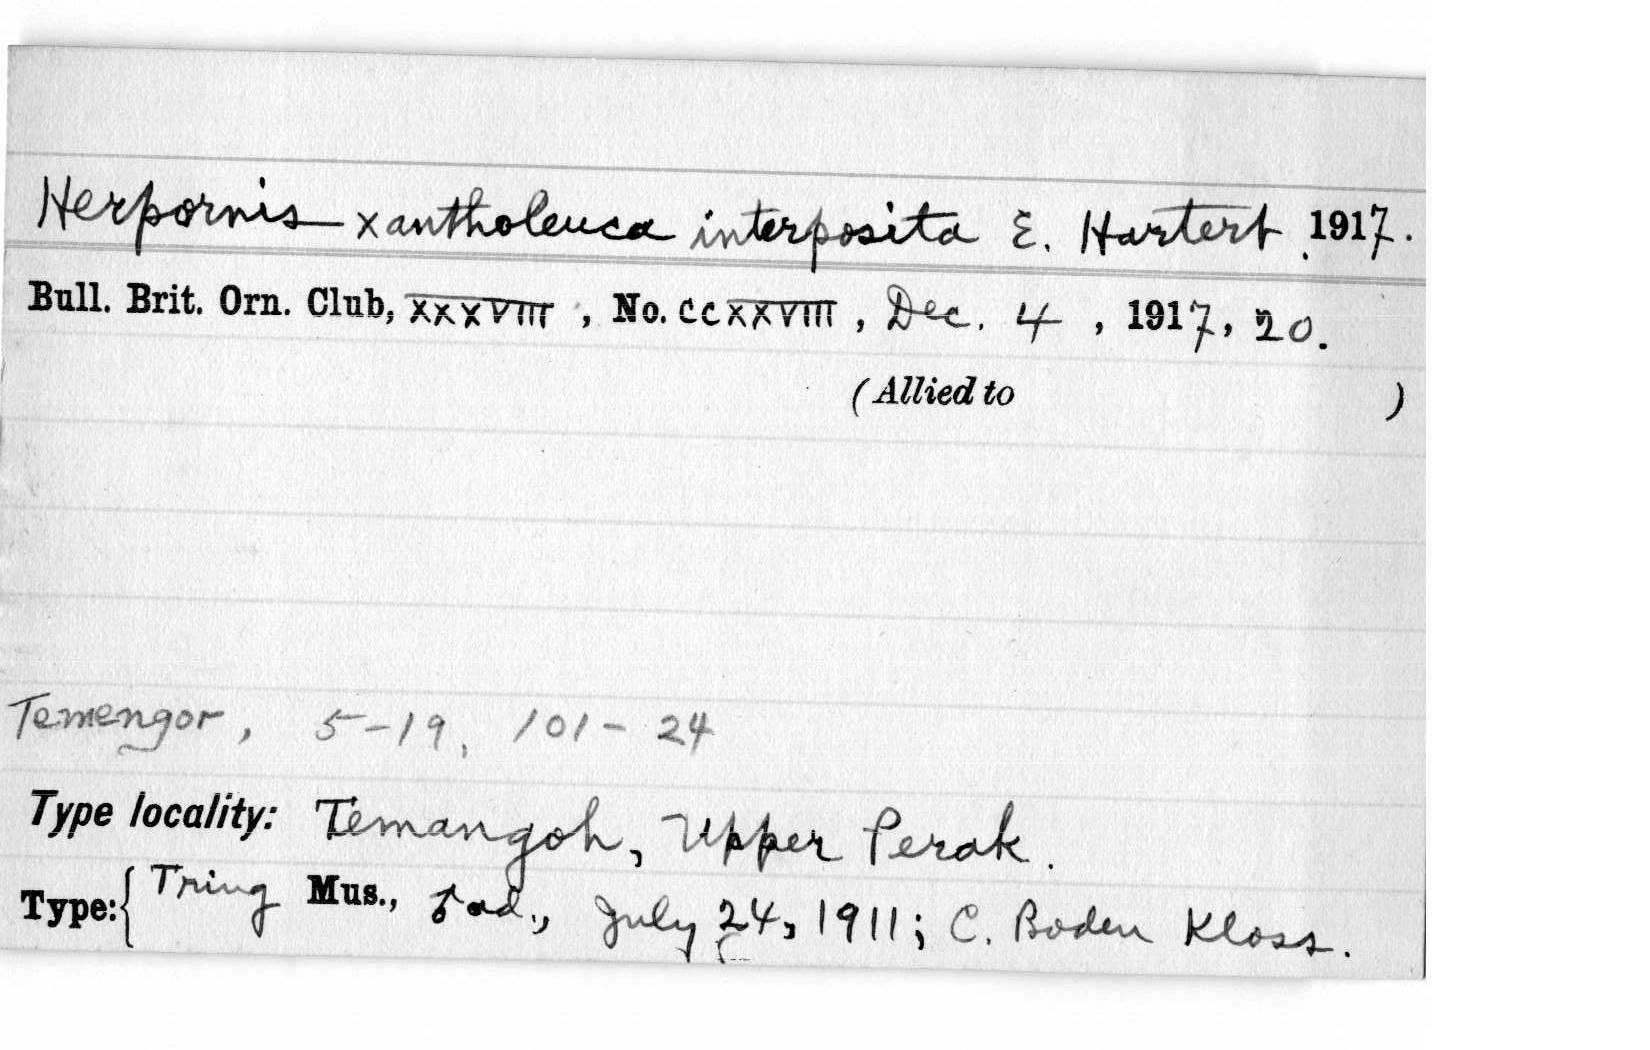 Herpornis xantholeuca interposita E. Hartert 1917.
Bull. Brit. Orn. Club, XXXVIII, No. CCXXVIII, Dec. 4, 1917, 20.
(Allied to )
Temengor, 5-19, 101-24
Type locality: Temangoh, Upper Perak.
Type: { Tring Mus., ♂ ad., July 24, 1911; C. Boden Kloss.